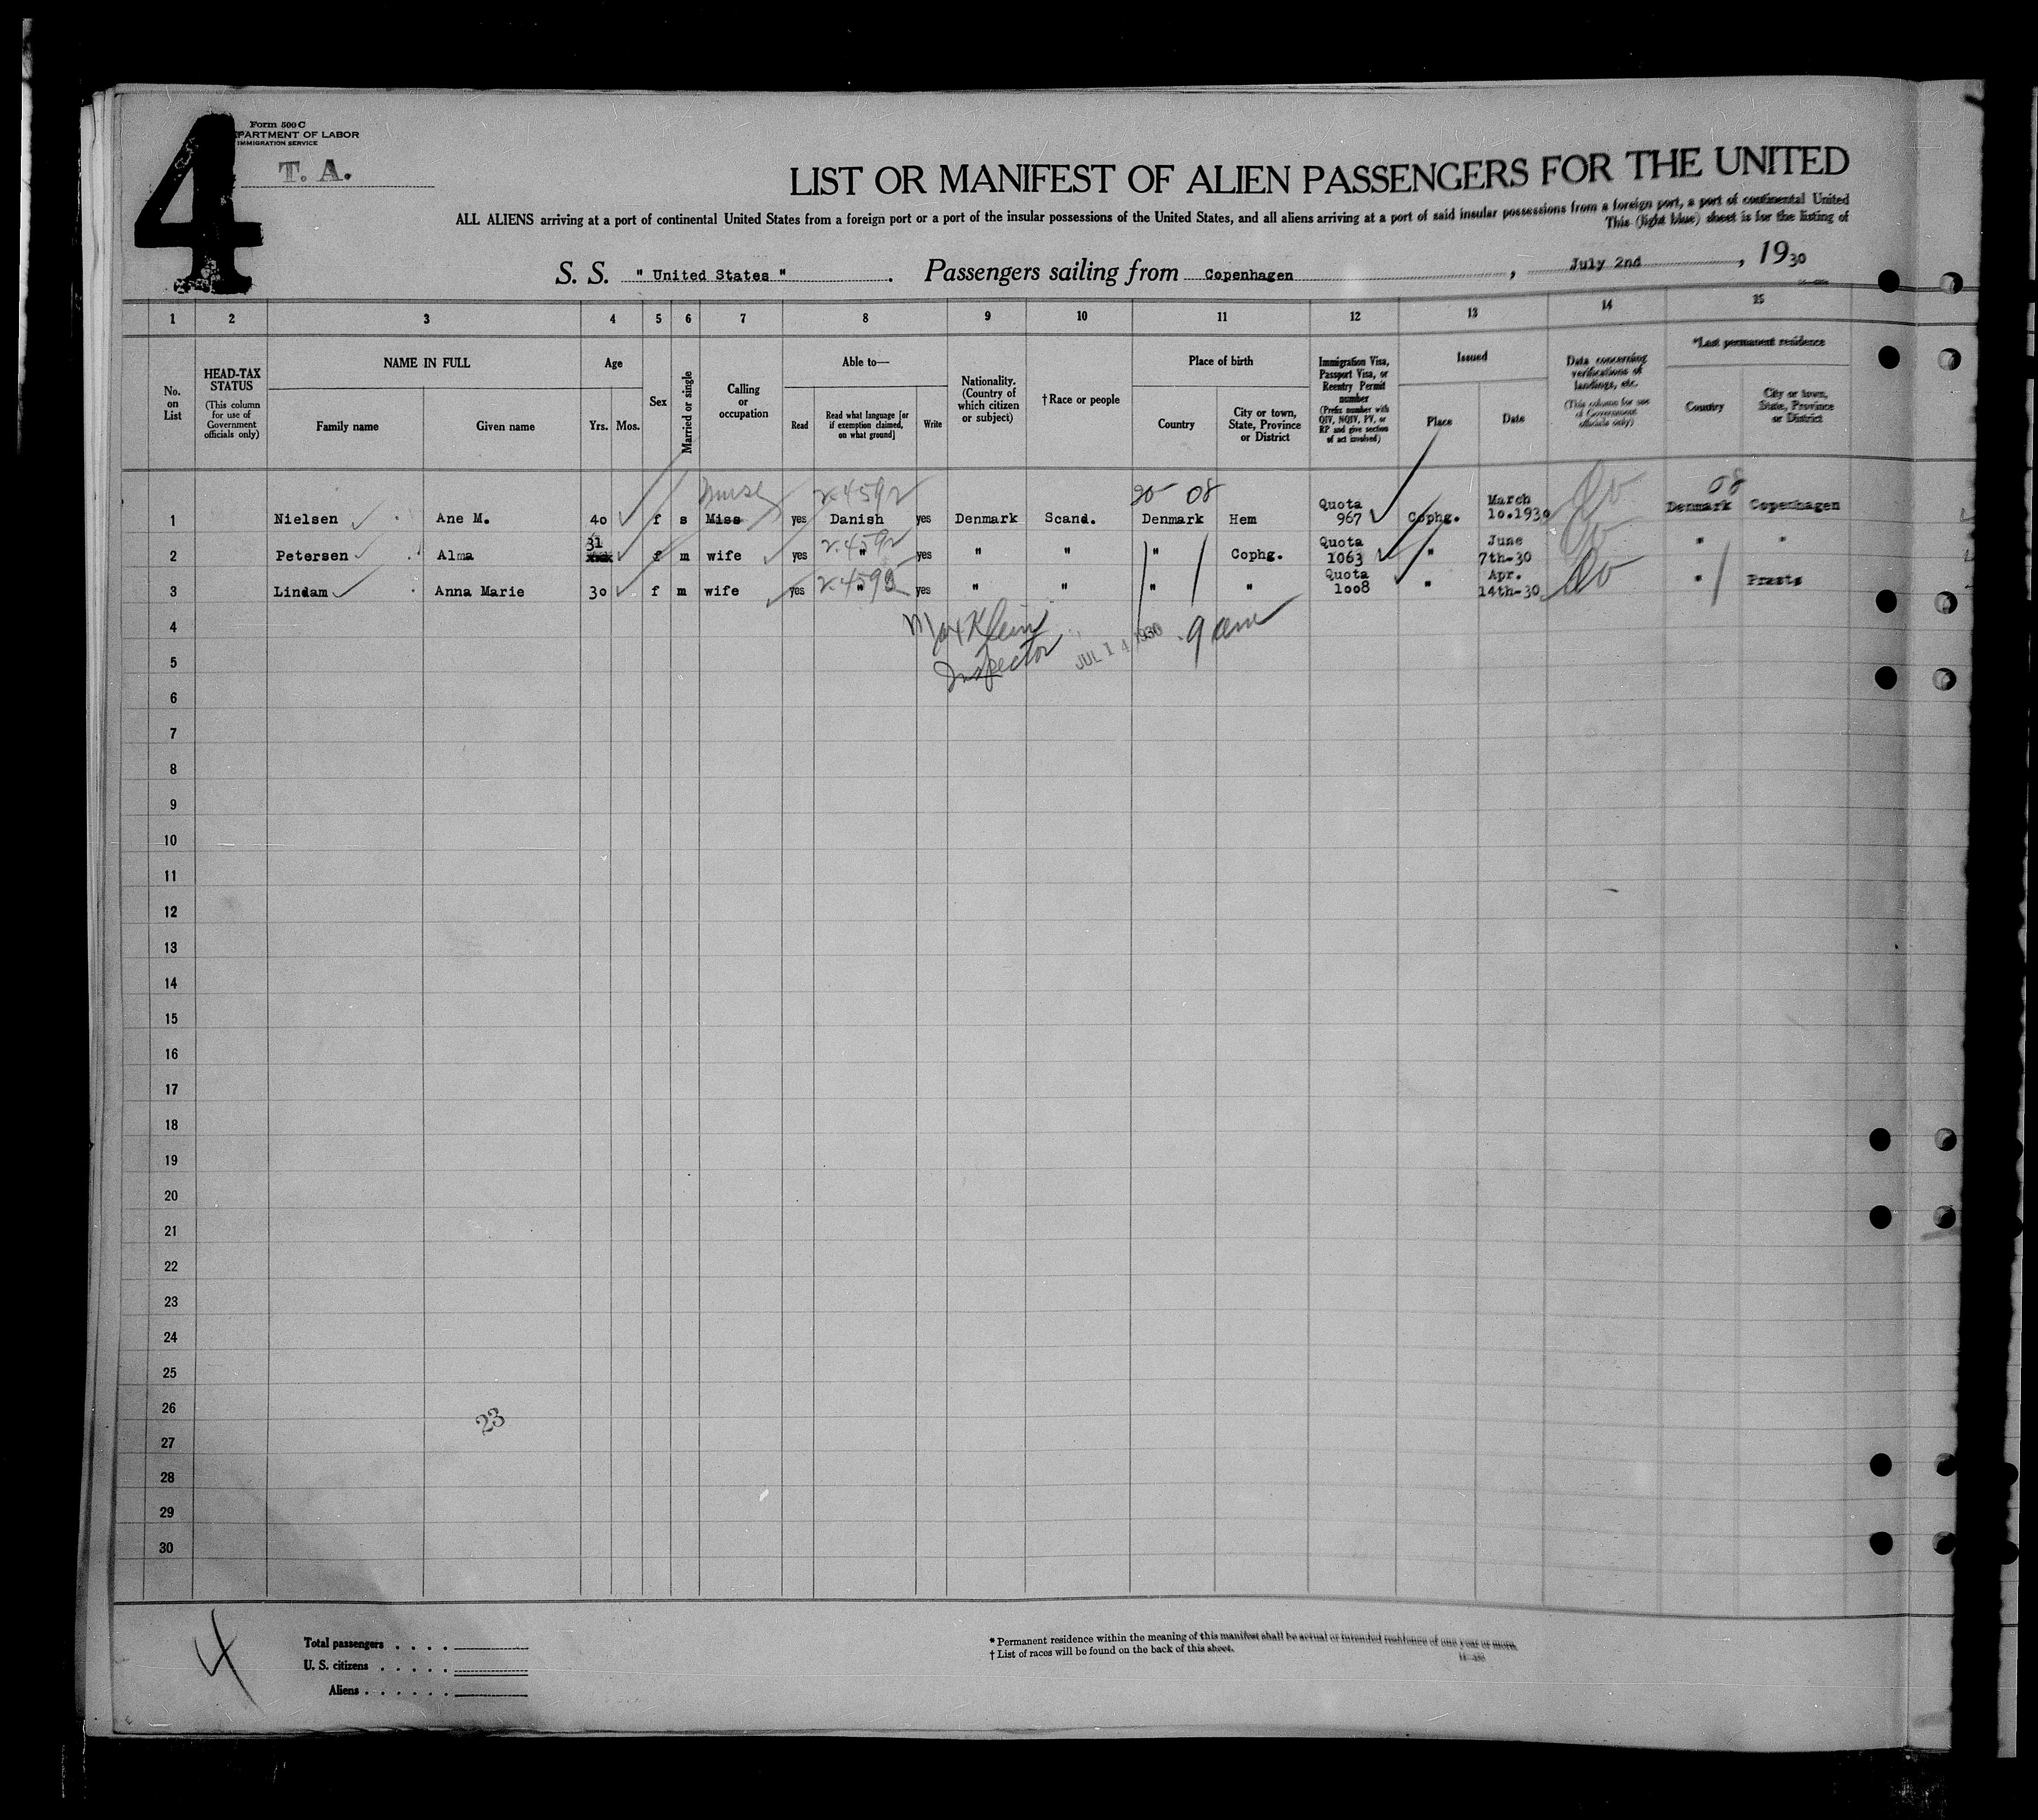 4
Form 500 C
DEPARTMENT OF LABOR
IMMIGRATION SERVICE
T. A.
LIST OR MANIFEST OF ALIEN PASSENGERS FOR THE UNITED
ALL ALIENS arriving at a port of continental United States from a foreign port or a port of the insular possessions of the United States, and all aliens arriving at a port of said insular possessions from a foreign port, a port of continental United
This (light blue) sheet is for the listing of
S. S. " United States ". Passengers sailing from Copenhagen, July 2nd, 1930
1 2 3 4 5 6 7 8 9 10 11 12 13 14 15
No. on List
HEAD-TAX STATUS (This column for use of Government officials only)
NAME IN FULL
Family name Given name
Age
Yrs. Mos.
Sex
Married or single
Calling or occupation
Able to—
Read Read what language [or if exemption claimed, on what ground] Write
Nationality. (Country of which citizen or subject)
†Race or people
Place of birth
Country City or town, State, Province or District
Immigration Visa, Passport Visa, or Reentry Permit number (Prefix number with QIV, NQIV, PV, or RP and give section of act involved)
Issued
Place Date
Data concerning verifications of landings, etc. (This column for use of Government officials only)
*Last permanent residence
Country City or town, State, Province or District
nurse 2-4592 20 08 08
1 Nielsen Ane M. 40 f s Miss yes Danish yes Denmark Scand. Denmark Hem Quota 967 Cophg. March 10.1930 Denmark Copenhagen
2-4592
2 Petersen Alma 31 f m wife yes " yes " " " Cophg. Quota 1063 " June 7th-30 " "
3 Lindam Anna Marie 30 f m wife yes " yes " " " " Quota 1008 " Apr. 14th-30 " Præstø
4
Max Klein
Inspector JUL 14 1930 9 am
5
6
7
8
9
10
11
12
13
14
15
16
17
18
19
20
21
22
23
24
25
26
23
27
28
29
30
4
Total passengers . . . .
U. S. citizens . . . . .
Aliens . . . . . .
* Permanent residence within the meaning of this manifest shall be actual or intended residence of one year or more.
† List of races will be found on the back of this sheet.